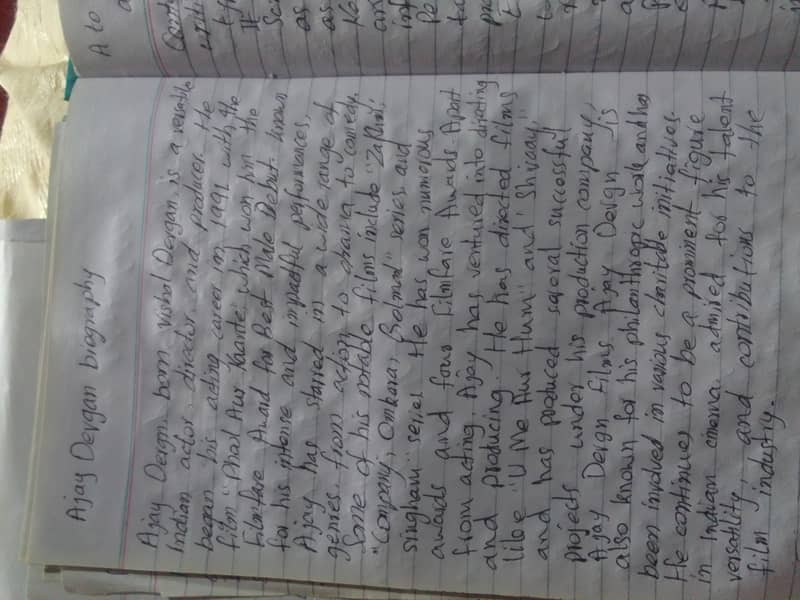 Ajay Devgan biography
Ajay Devgn born Vishal Devgan, is a versatile
Indian actor, director and producer. He
began his acting career in 1991 with the
film "Phool Aur Kaante", which won him the
Filmfare Award for Best Male Debut. known
for his intense and impactful performances,
Ajay has starred in a wide range of
genres from action to drama to comedy.
Some of his notable films include "Zakhm",
"Company", Omkara, Golmal" series and
singham" series He has won numorous
awards and four filmfare Awards. Apart
from acting Ajay has ventured into directing
and producing. He has directed films
like "U Me Aur Hum" and "Shivaay",
and has produced several successful
projects under his production company,
Ajay Devgn films Ajay Devgn is
also known for his philanthropic work and has
been involved in various charitable initiatives.
He continues to be a prominent figure
in Indian cinema admired for his talent
versatility, and contributions to the
film industry.
A to